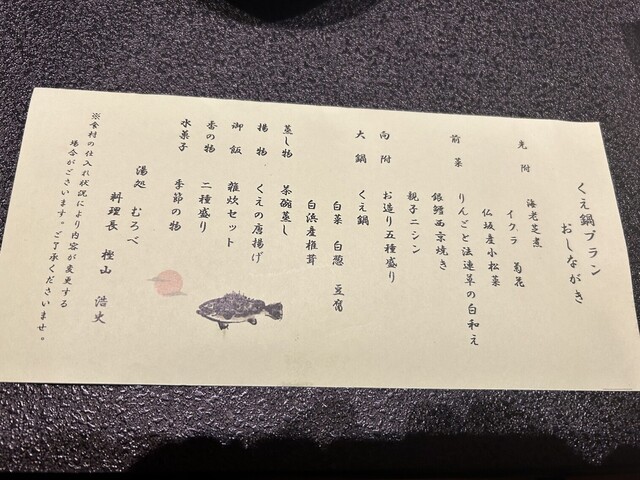 くえ鍋プラン
おしながき
先附 海老芝煮
イクラ 菊花
仏坂産小松菜
前菜 りんごと法連草の白和え
銀鱈西京焼き
親子ニシン
向附 お造り五種盛り
大鍋 くえ鍋
白菜 白葱 豆腐
白浜産椎茸
蒸し物 茶碗蒸し
揚物 くえの唐揚げ
御飯 雑炊セット
香の物 二種盛り
水菓子 季節の物
湯処 むろべ
料理長 樫山 浩史
※食材の仕入れ状況により内容が変更する
場合がございます。ご了承くださいませ。